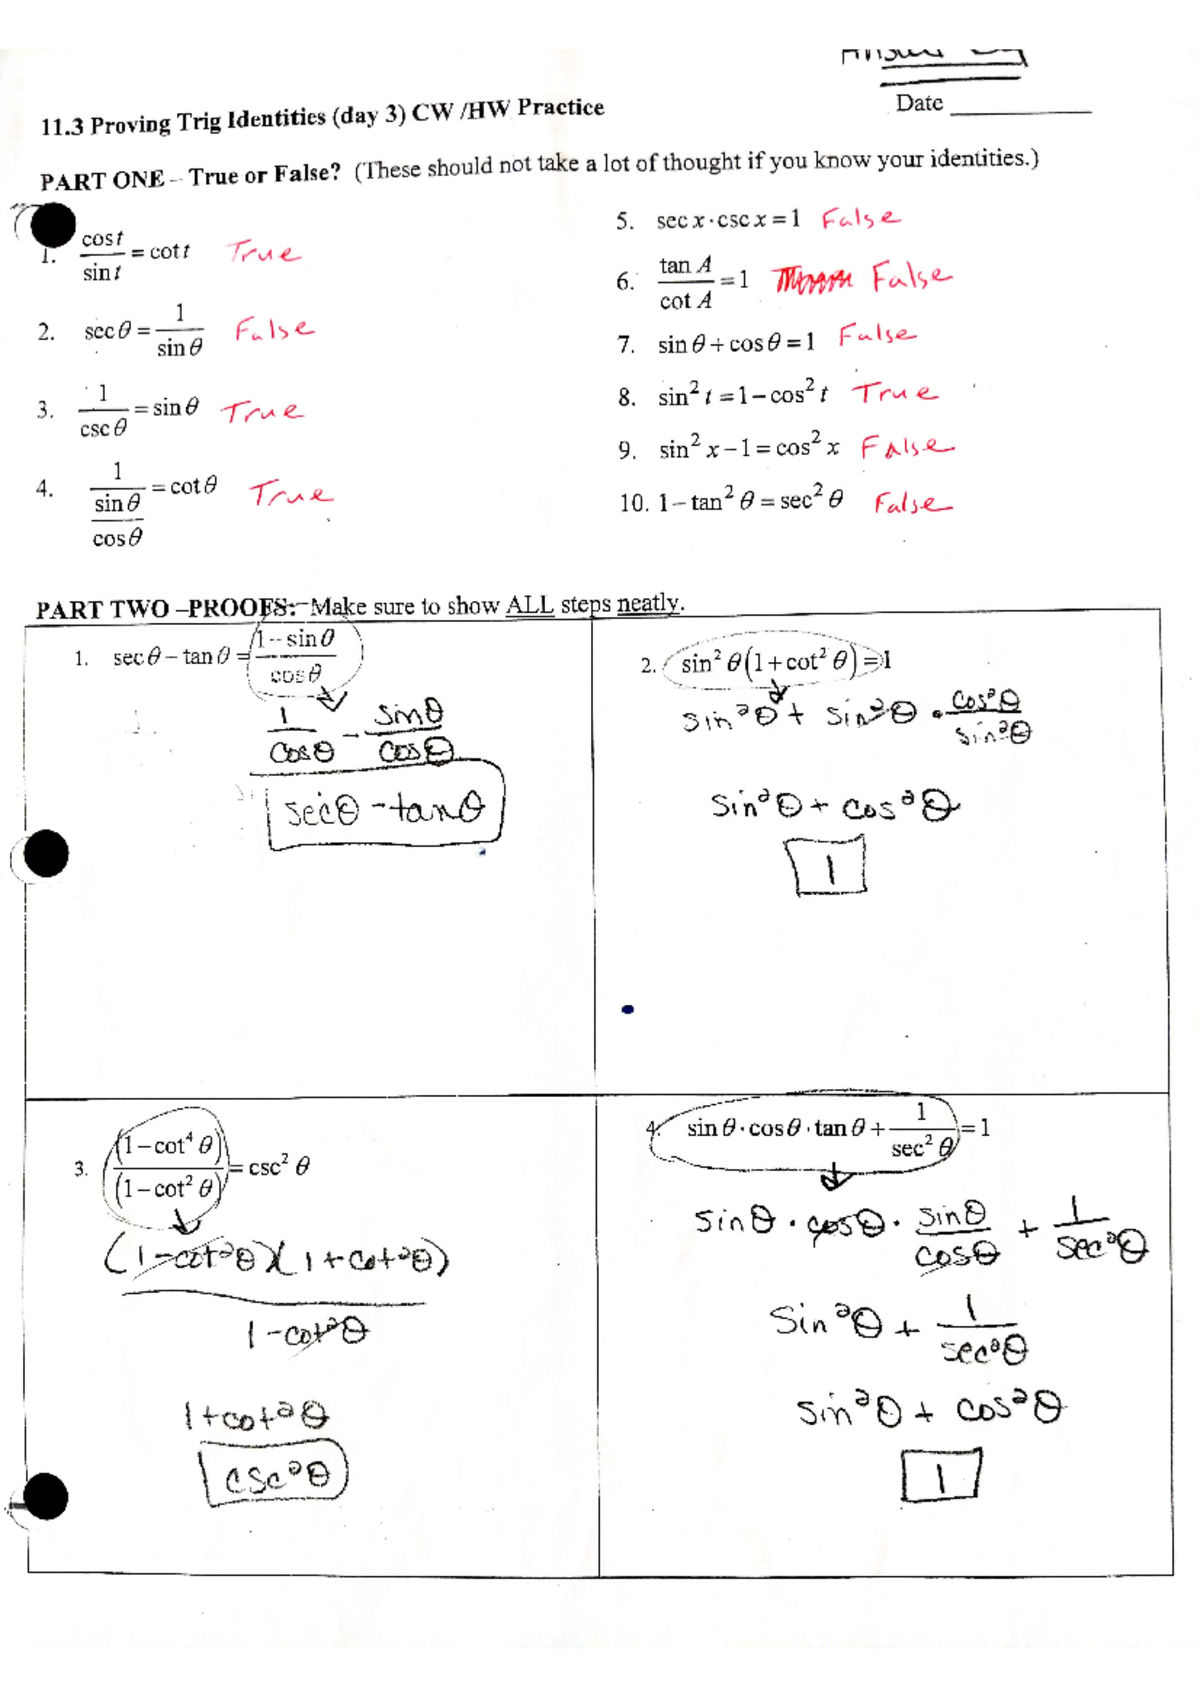 Answer Key
Date
11.3 Proving Trig Identities (day 3) CW /HW Practice
PART ONE – True or False? (These should not take a lot of thought if you know your identities.)
1. cos t / sin t = cot t True
2. sec θ = 1 / sin θ False
3. 1 / csc θ = sin θ True
4. 1 / (sin θ / cos θ) = cot θ True
5. sec x · csc x = 1 False
6. tan A / cot A = 1 False
7. sin θ + cos θ = 1 False
8. sin² t = 1 – cos² t True
9. sin² x – 1 = cos² x False
10. 1 – tan² θ = sec² θ False
PART TWO –PROOFS: Make sure to show ALL steps neatly.
1. sec θ – tan θ = (1 – sin θ) / cos θ
1 / cos θ – sin θ / cos θ
sec θ – tan θ
2. sin² θ (1 + cot² θ) = 1
sin² θ + sin² θ · cos² θ / sin² θ
sin² θ + cos² θ
1
3. (1 – cot⁴ θ) / (1 – cot² θ) = csc² θ
(1 – cot² θ)(1 + cot² θ)
1 – cot² θ
1 + cot² θ
csc² θ
4. sin θ · cos θ · tan θ + 1 / sec² θ = 1
sin θ · cos θ · sin θ / cos θ + 1 / sec² θ
sin² θ + 1 / sec² θ
sin² θ + cos² θ
1